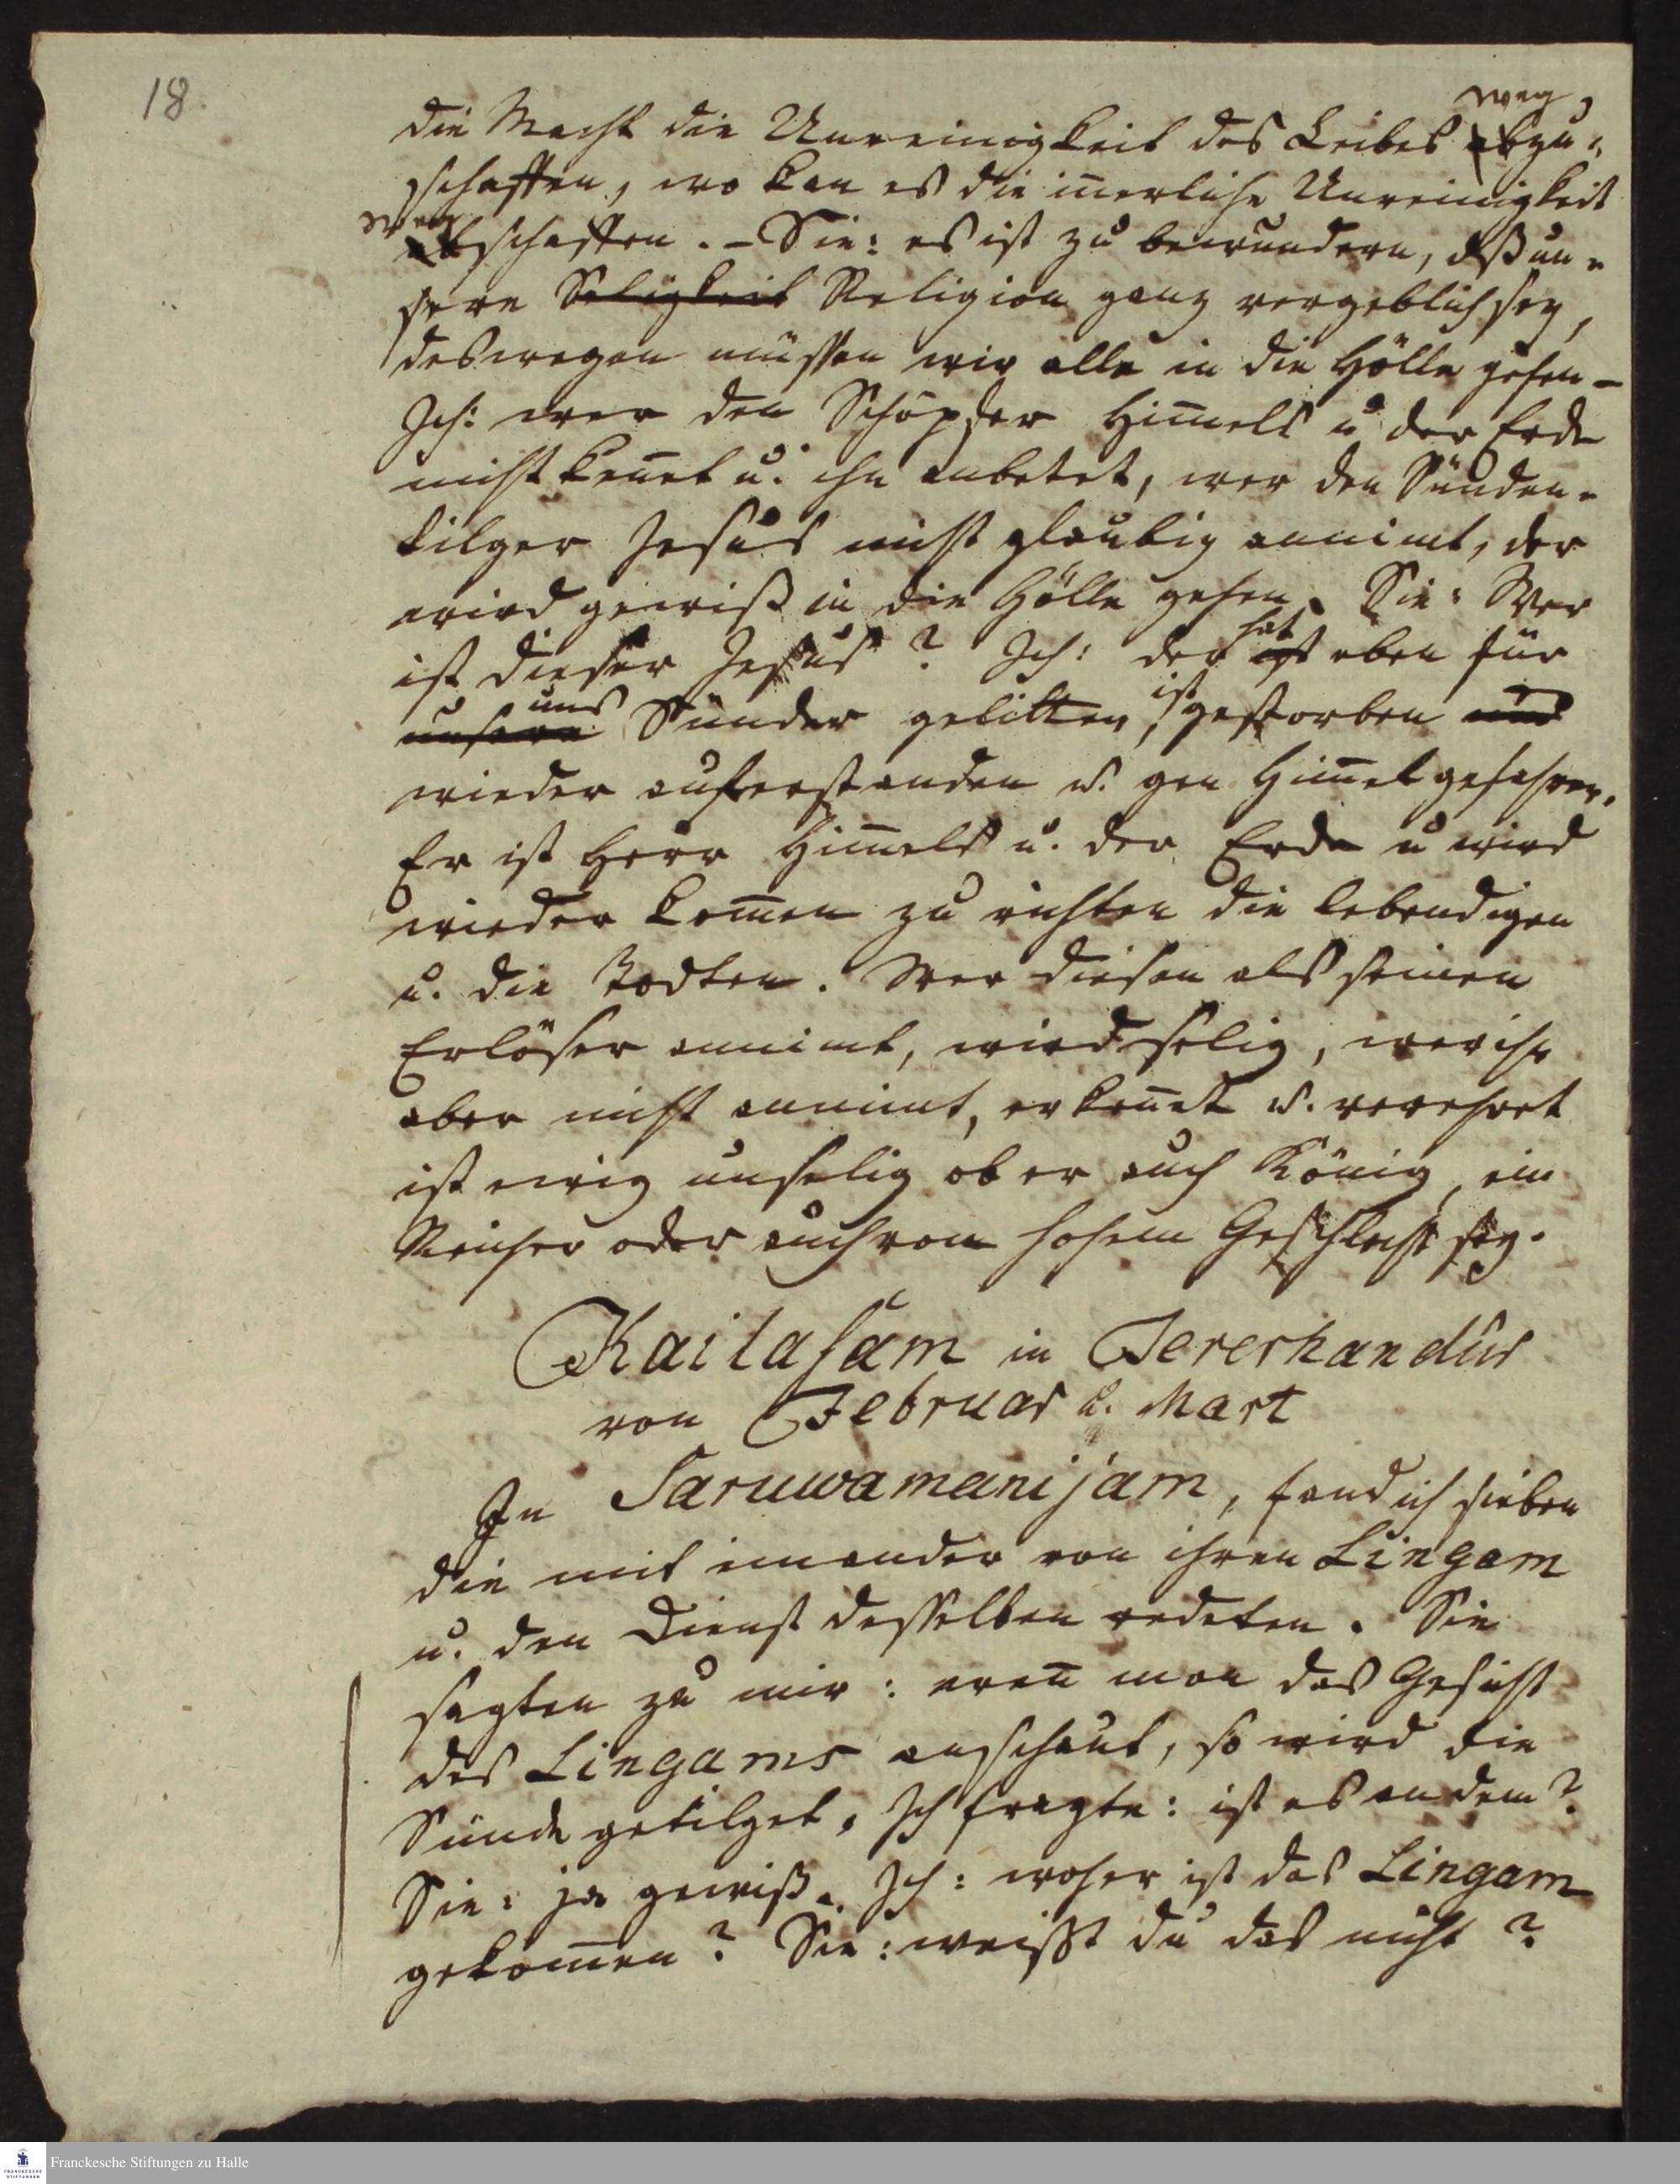 18.
die Macht die Unreinigkeit des Leibes abzu- weg
schaffen, wo kan es die in̄erliche Unreinigkeit
weg abschaffen. – Sie: es ist zu bewundern, dß un-
sere Seligkeit Religion ganz vergeblich sey,
deswegen müssen wir alle in die Hölle gehen –
Ich: wer den Schöpfer Him̄els u der Erde
nicht ken̄et u. ihn anbetet, wer den Sünden-
tilger Jesus nicht glaubig annimt, der
wird gewiß in die Hölle gehen. Sie: Wer
ist dieser Jesus? Ich: der ist hat eben für
unsere uns Sünder gelitten, ist gestorben und
wieder auferstanden u. gen Him̄el gefahren.
Er ist Herr Him̄els u. der Erde u wird
wieder kom̄en zu richten die lebendigen
u. die Todten. Wer diesen als seinen
Erlöser annimt, wird selig, wer ihn
aber nicht annimt, erken̄et u. verehret
ist ewig unselig ob er auch König, ein
Reicher oder auch von hohem Geschlecht sey.
Kailasam in Tererhandur
von Februar u. Mart
In Saruwamanijam, fand ich sieben
die mit einander von ihren Lingam
u. den Dienst desselben redeten. Sie
sagten zu mir: wen̄ man das Gesicht
des Lingams anschaut, so wird die
Sünde getilget. Ich fragte: ist es an dem?
Sie: ja gewiß. Ich: woher ist das Lingam
gekom̄en? Sie: weißt du das nicht?
Franckesche Stiftungen zu Halle
FRANCKESCHE
STIFTUNGEN